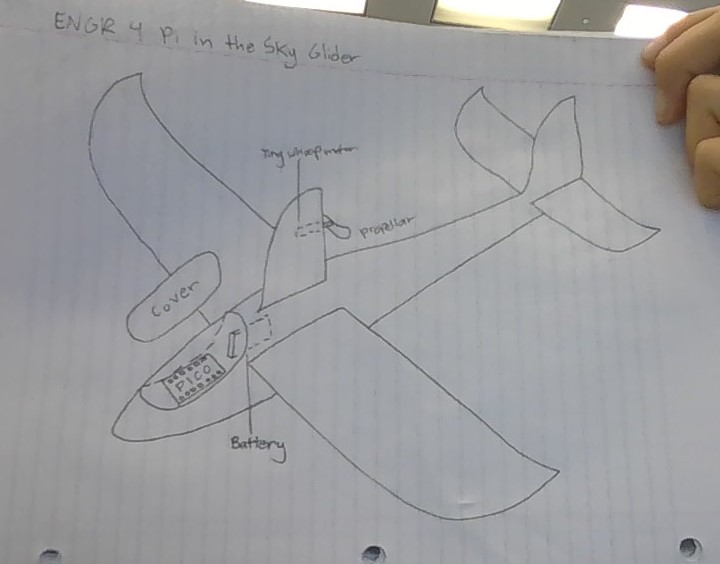 ENGR 4 Pi in the Sky Glider
Tiny whoop motor
propellar
Cover
PICO
Battery